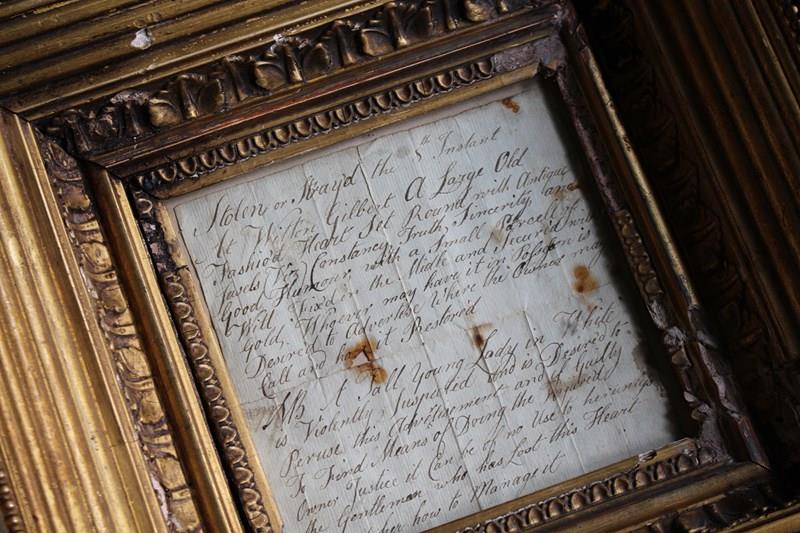 Stolen or Stray'd the 5th Instant
At Wisson Gilbert A Large Old
Fashio'd Heart Set Round with Antique
Jewels Viz Constancy, Truth, Sincerity, and
Good Humour, with a Small Parcell of
Will Fixd in the Midle and Secured with
Gold. Whoever may have it in Possesion is
Desired to Advertise Where the Owner may
Call and have it Restor'd
NB. A Tall Young Lady in White
is Violently Suspected and is Desired to
Peruse this Advertisement and if Guilty
To Find Means of Doing the
Owner Justice it Can be of no Use to her
the Gentleman who has Lost this Heart
her how to Manage it